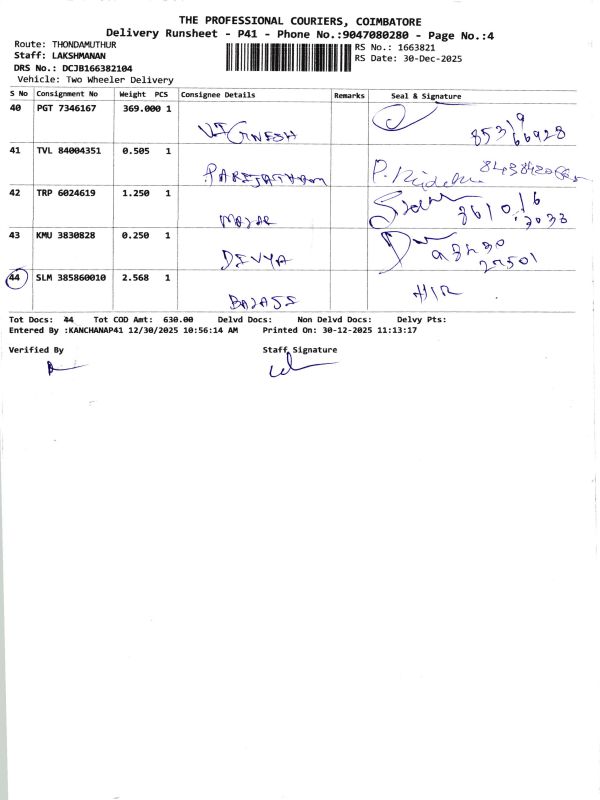 THE PROFESSIONAL COURIERS, COIMBATORE
Delivery Runsheet - P41 - Phone No.:9047080280 - Page No.:4
Route: THONDAMUTHUR
RS No.: 1663821
Staff: LAKSHMANAN
RS Date: 30-Dec-2025
DRS No.: DCJB166382104
Vehicle: Two Wheeler Delivery
S No Consignment No Weight PCS Consignee Details Remarks Seal & Signature
40 PGT 7346167 369.000 1
VIGNESH
41 TVL 84004351 0.505 1
PARIJATHAM
42 TRP 6024619 1.250 1
43 KMU 3830828 0.250 1
DIVYA
44 SLM 385860010 2.568 1
BALAJI
Tot Docs: 44 Tot COD Amt: 630.00 Delvd Docs: Non Delvd Docs: Delvy Pts:
Entered By :KANCHANAP41 12/30/2025 10:56:14 AM Printed On: 30-12-2025 11:13:17
Verified By Staff Signature